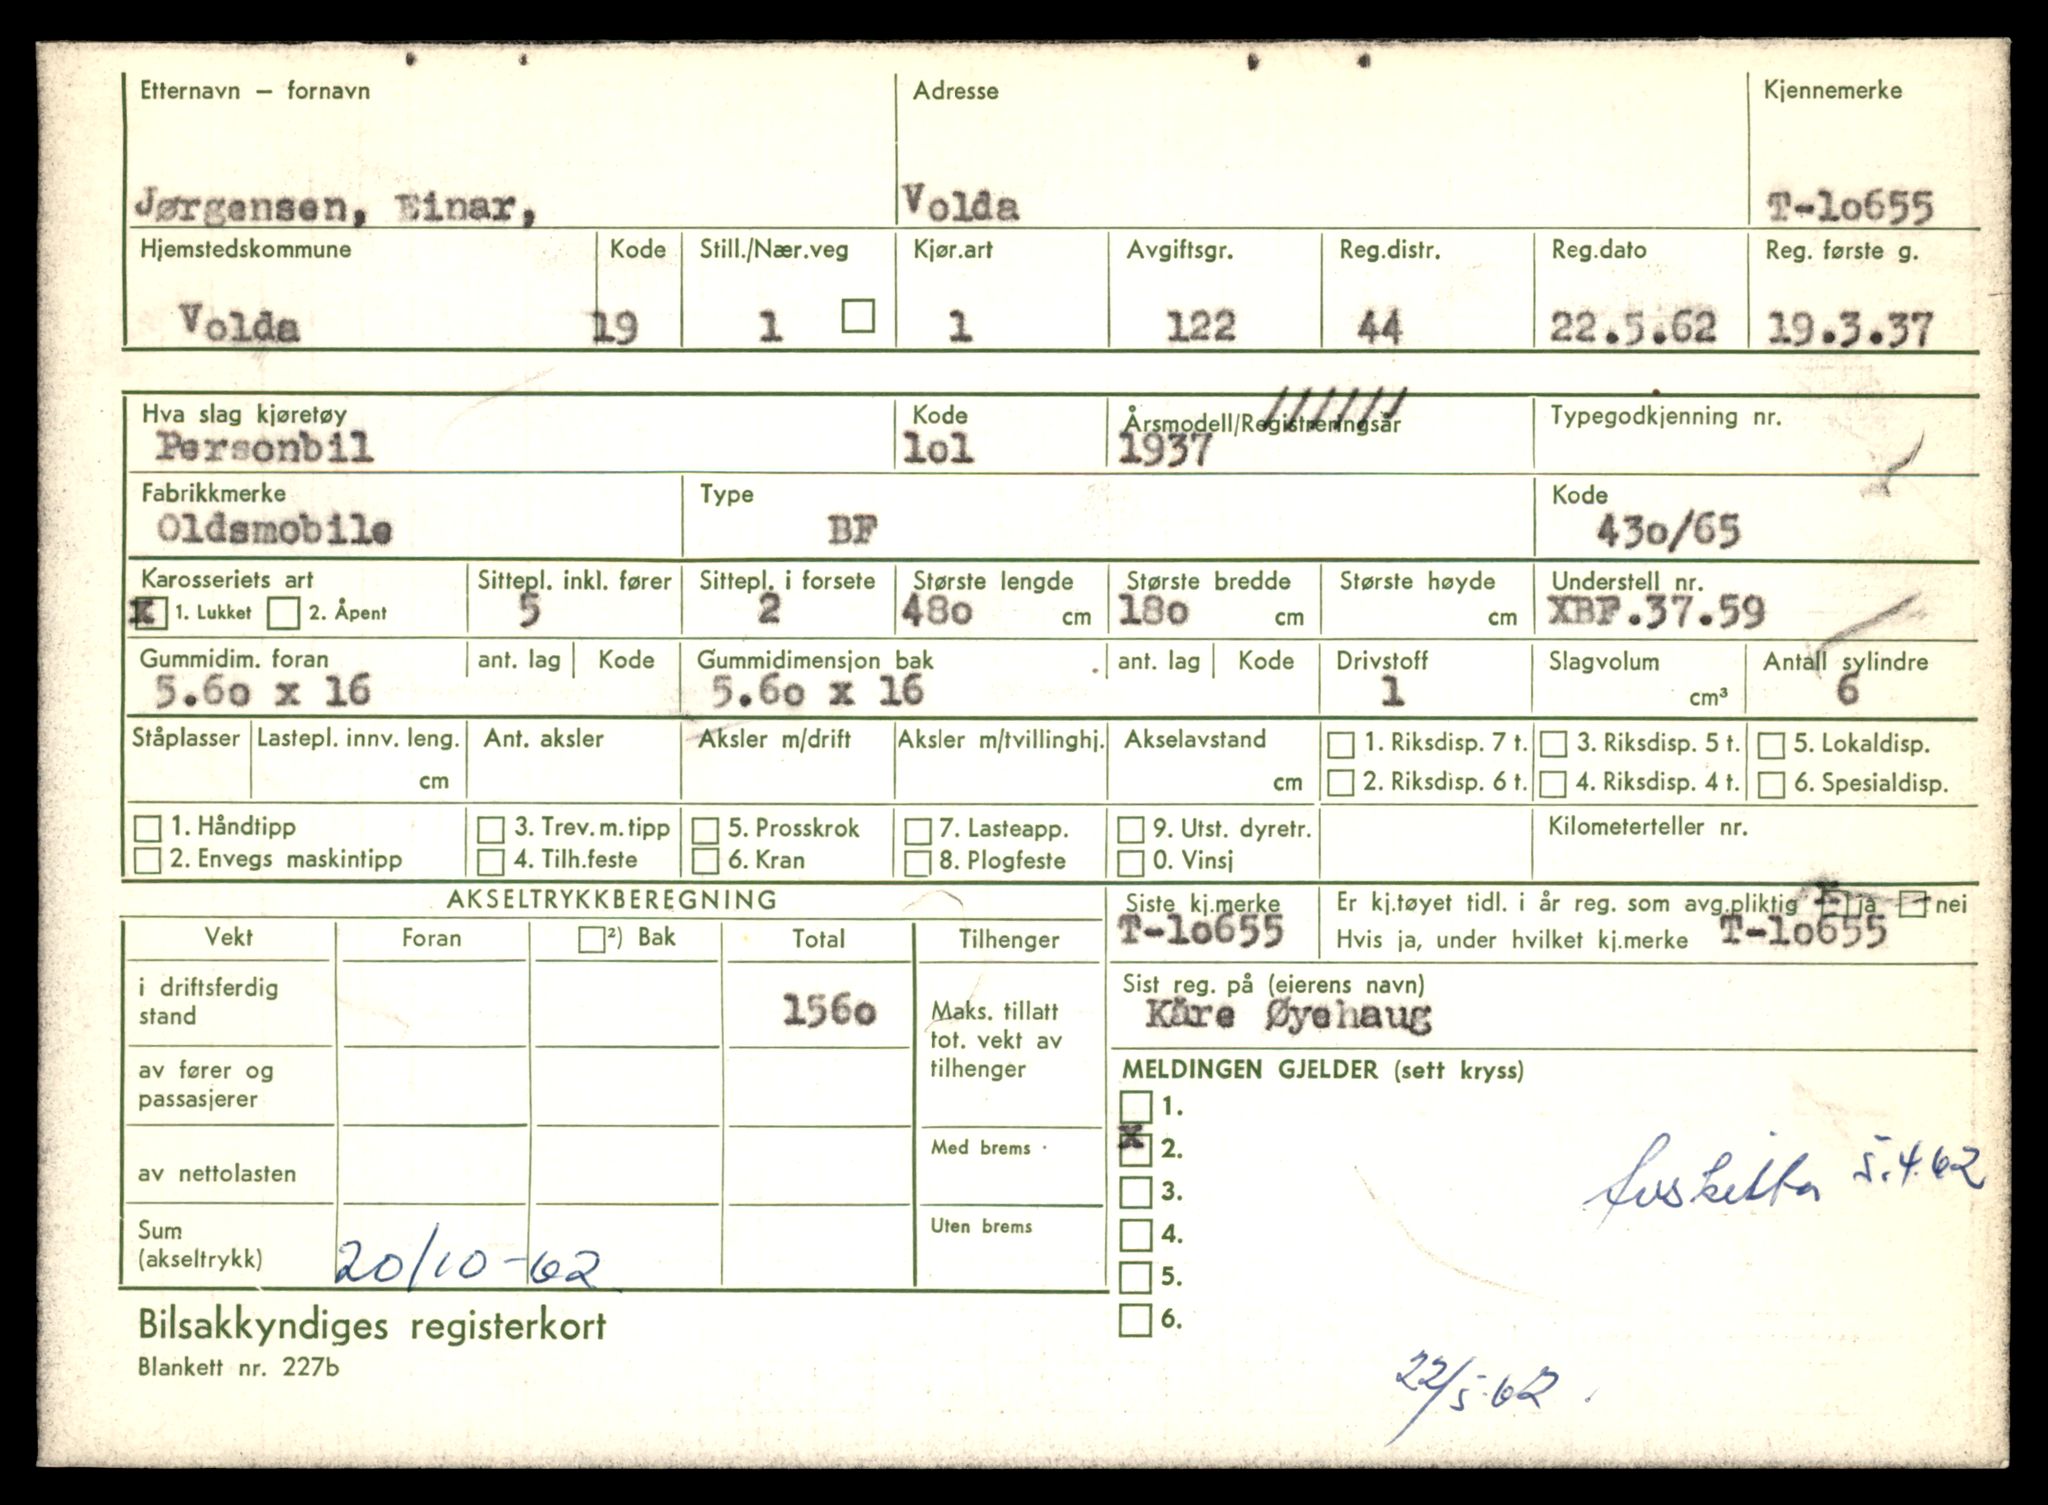 Etternavn – fornavn Adresse Kjennemerke
Jørgensen, Einar, Volda T-lo655
Hjemstedskommune Kode Still./Nær.veg Kjør.art Avgiftsgr. Reg.distr. Reg.dato Reg. første g.
Volda 19 1 1 122 44 22.5.62 19.3.37
Hva slag kjøretøy Kode Årsmodell/Registreringsår Typegodkjenning nr.
Personbil lol 1937
Fabrikkmerke Type Kode
Oldsmobile BF 43o/65
Karosseriets art Sittepl. inkl. fører Sittepl. i forsete Største lengde Største bredde Største høyde Understell nr.
x 1. Lukket 2. Åpent 5 2 48o cm 18o cm cm XBF.37.59
Gummidim. foran ant. lag Kode Gummidimensjon bak ant. lag Kode Drivstoff Slagvolum Antall sylindre
5.6o x 16 5.6o x 16 1 cm³ 6
Ståplasser Lastepl. innv. leng. Ant. aksler Aksler m/drift Aksler m/tvillinghj. Akselavstand 1. Riksdisp. 7 t. 3. Riksdisp. 5 t. 5. Lokaldisp.
cm cm 2. Riksdisp. 6 t. 4. Riksdisp. 4 t. 6. Spesialdisp.
1. Håndtipp 3. Trev. m. tipp 5. Prosskrok 7. Lasteapp. 9. Utst. dyretr. Kilometerteller nr.
2. Envegs maskintipp 4. Tilh.feste 6. Kran 8. Plogfeste 0. Vinsj
AKSELTRYKKBEREGNING Siste kj.merke Er kj.tøyet tidl. i år reg. som avg.pliktig x ja nei
T-lo655 Hvis ja, under hvilket kj.merke T-lo655
Vekt Foran ²) Bak Total Tilhenger
i driftsferdig stand 156o Maks. tillatt tot. vekt av tilhenger
Sist reg. på (eierens navn)
Kåre Øyehaug
av fører og passasjerer
MELDINGEN GJELDER (sett kryss)
1.
av nettolasten Med brems
x 2. Avskilta 5.4.62
3.
Sum (akseltrykk) 20/10-62 Uten brems
4.
5.
6.
Bilsakkyndiges registerkort
Blankett nr. 227b
22/5-62.